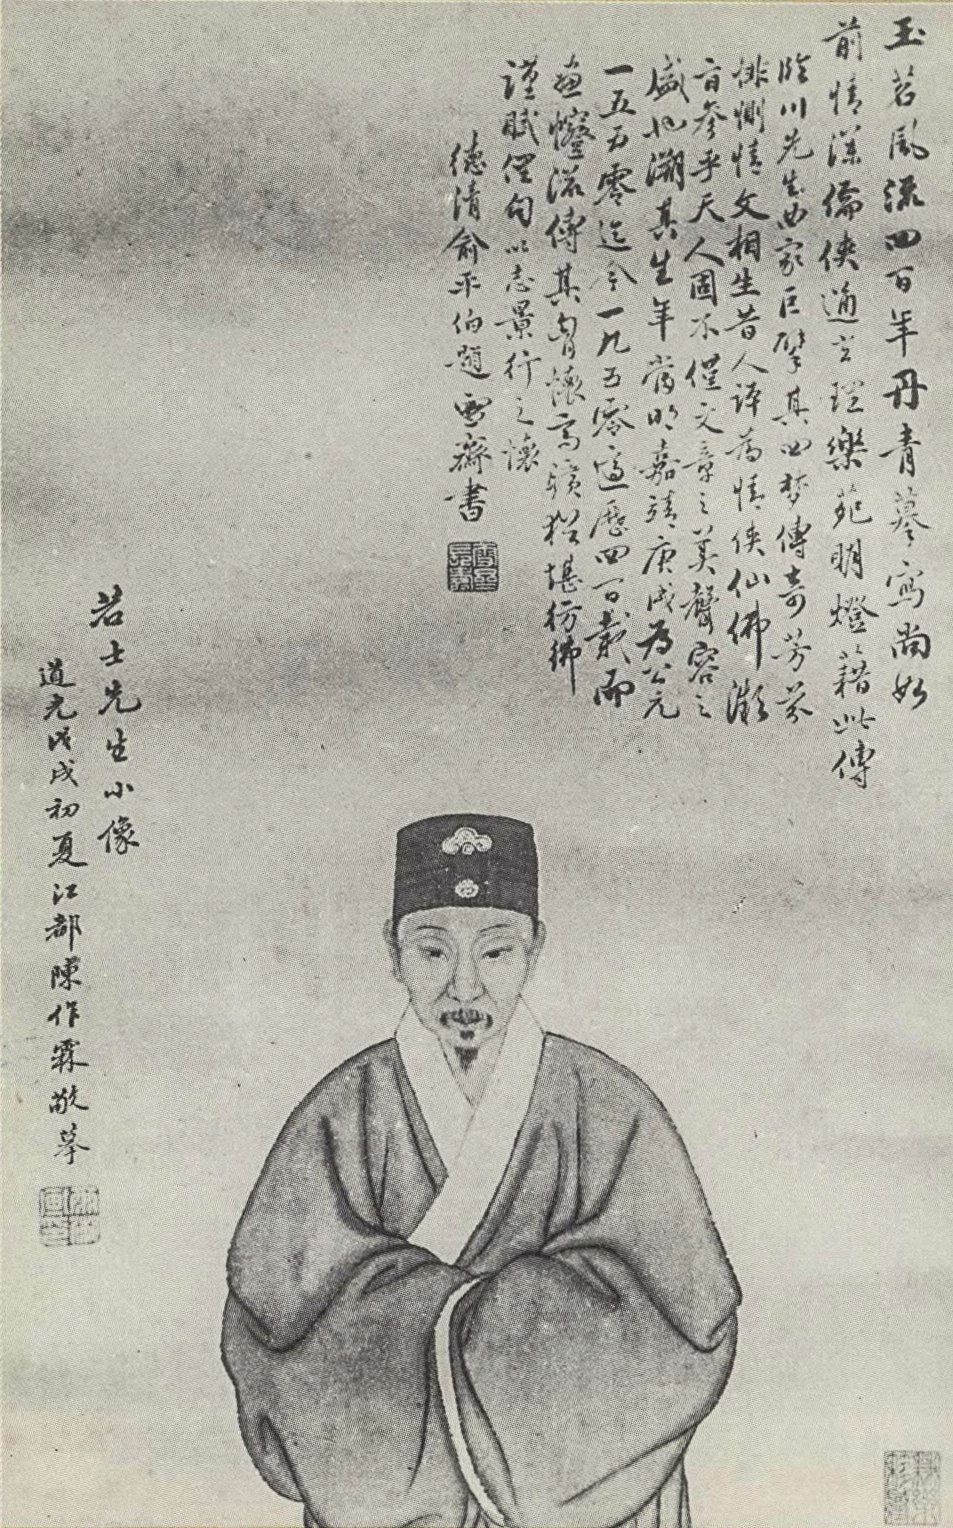 玉茗風流四百年丹青摹寫尚如
前情深儒俠通玄理樂苑明燈藉此傳
臨川先生曲家巨擘其四夢傳奇芳芬
悱惻情文相生昔人評為情俠仙佛
盲參乎天人固不僅文章之美聲容之
盛也溯其生年當明嘉靖庚戌為公元
一五五零迄今一九五零適歷四百載而
遺徽滋傳其胸懷高曠猶堪彷彿
謹賦俚句以志景行之懷
德清俞平伯題 齋書
若士先生小像
道光戊戌初夏江都陳作霖敬摹